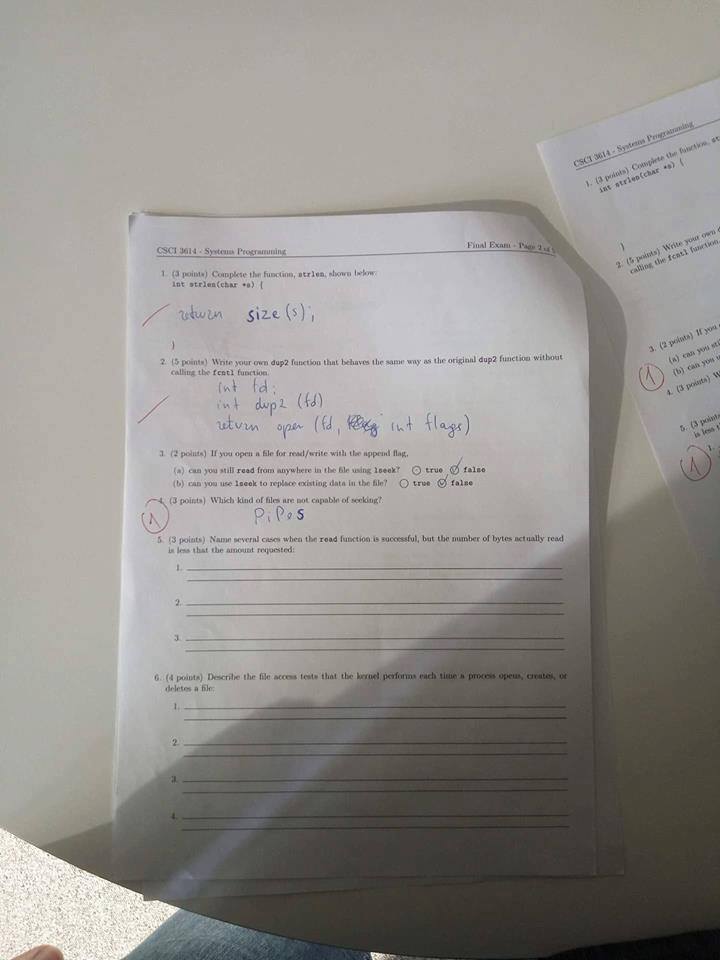 CSCI 3614 - Systems Programming
Final Exam - Page 2 of 5
1. (3 points) Complete the function, strlen, shown below:
int strlen(char *s) {
return size(s);
}
2. (5 points) Write your own dup2 function that behaves the same way as the original dup2 function without
calling the fcntl function.
int fd;
int dup2 (fd)
return open (fd, int flags)
3. (2 points) If you open a file for read/write with the append flag,
(a) can you still read from anywhere in the file using lseek? true false
(b) can you use lseek to replace existing data in the file? true false
4. (3 points) Which kind of files are not capable of seeking?
1
PiPes
5. (3 points) Name several cases when the read function is successful, but the number of bytes actually read
is less that the amount requested:
1.
2.
3.
6. (4 points) Describe the file access tests that the kernel performs each time a process opens, creates, or
deletes a file:
1.
2.
3.
4.
CSCI 3614 - Systems Programming
1. (3 points) Complete the function, st
int strlen(char *s) {
}
2. (5 points) Write your own
calling the fcntl function
3. (2 points) If you
(a) can you sti
(b) can you
1
4. (3 points) W
5. (3 point
is less t
1
1.